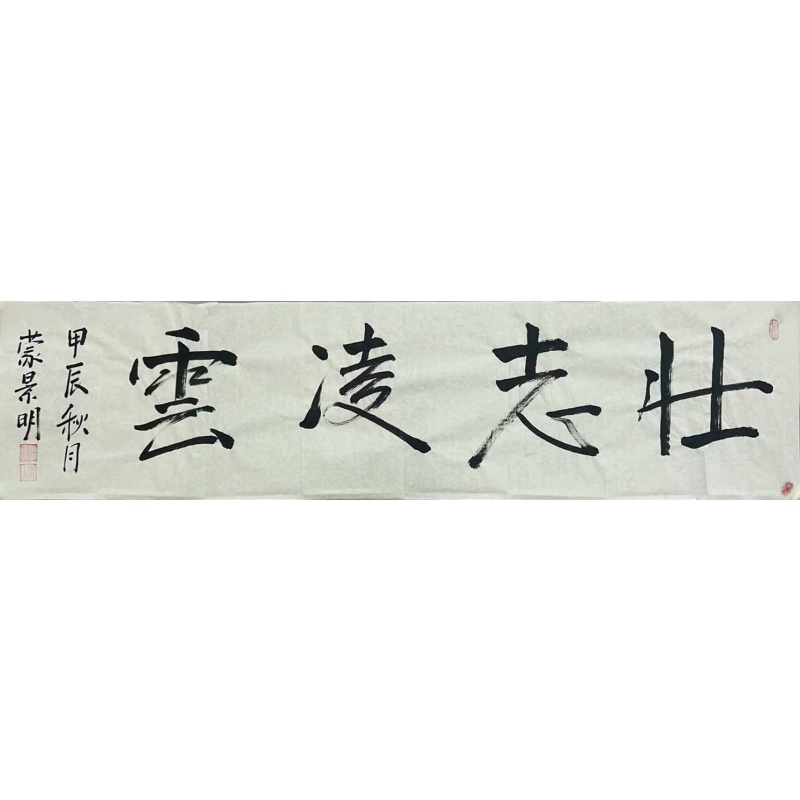 壮志凌雲
甲辰秋月
蒙景明